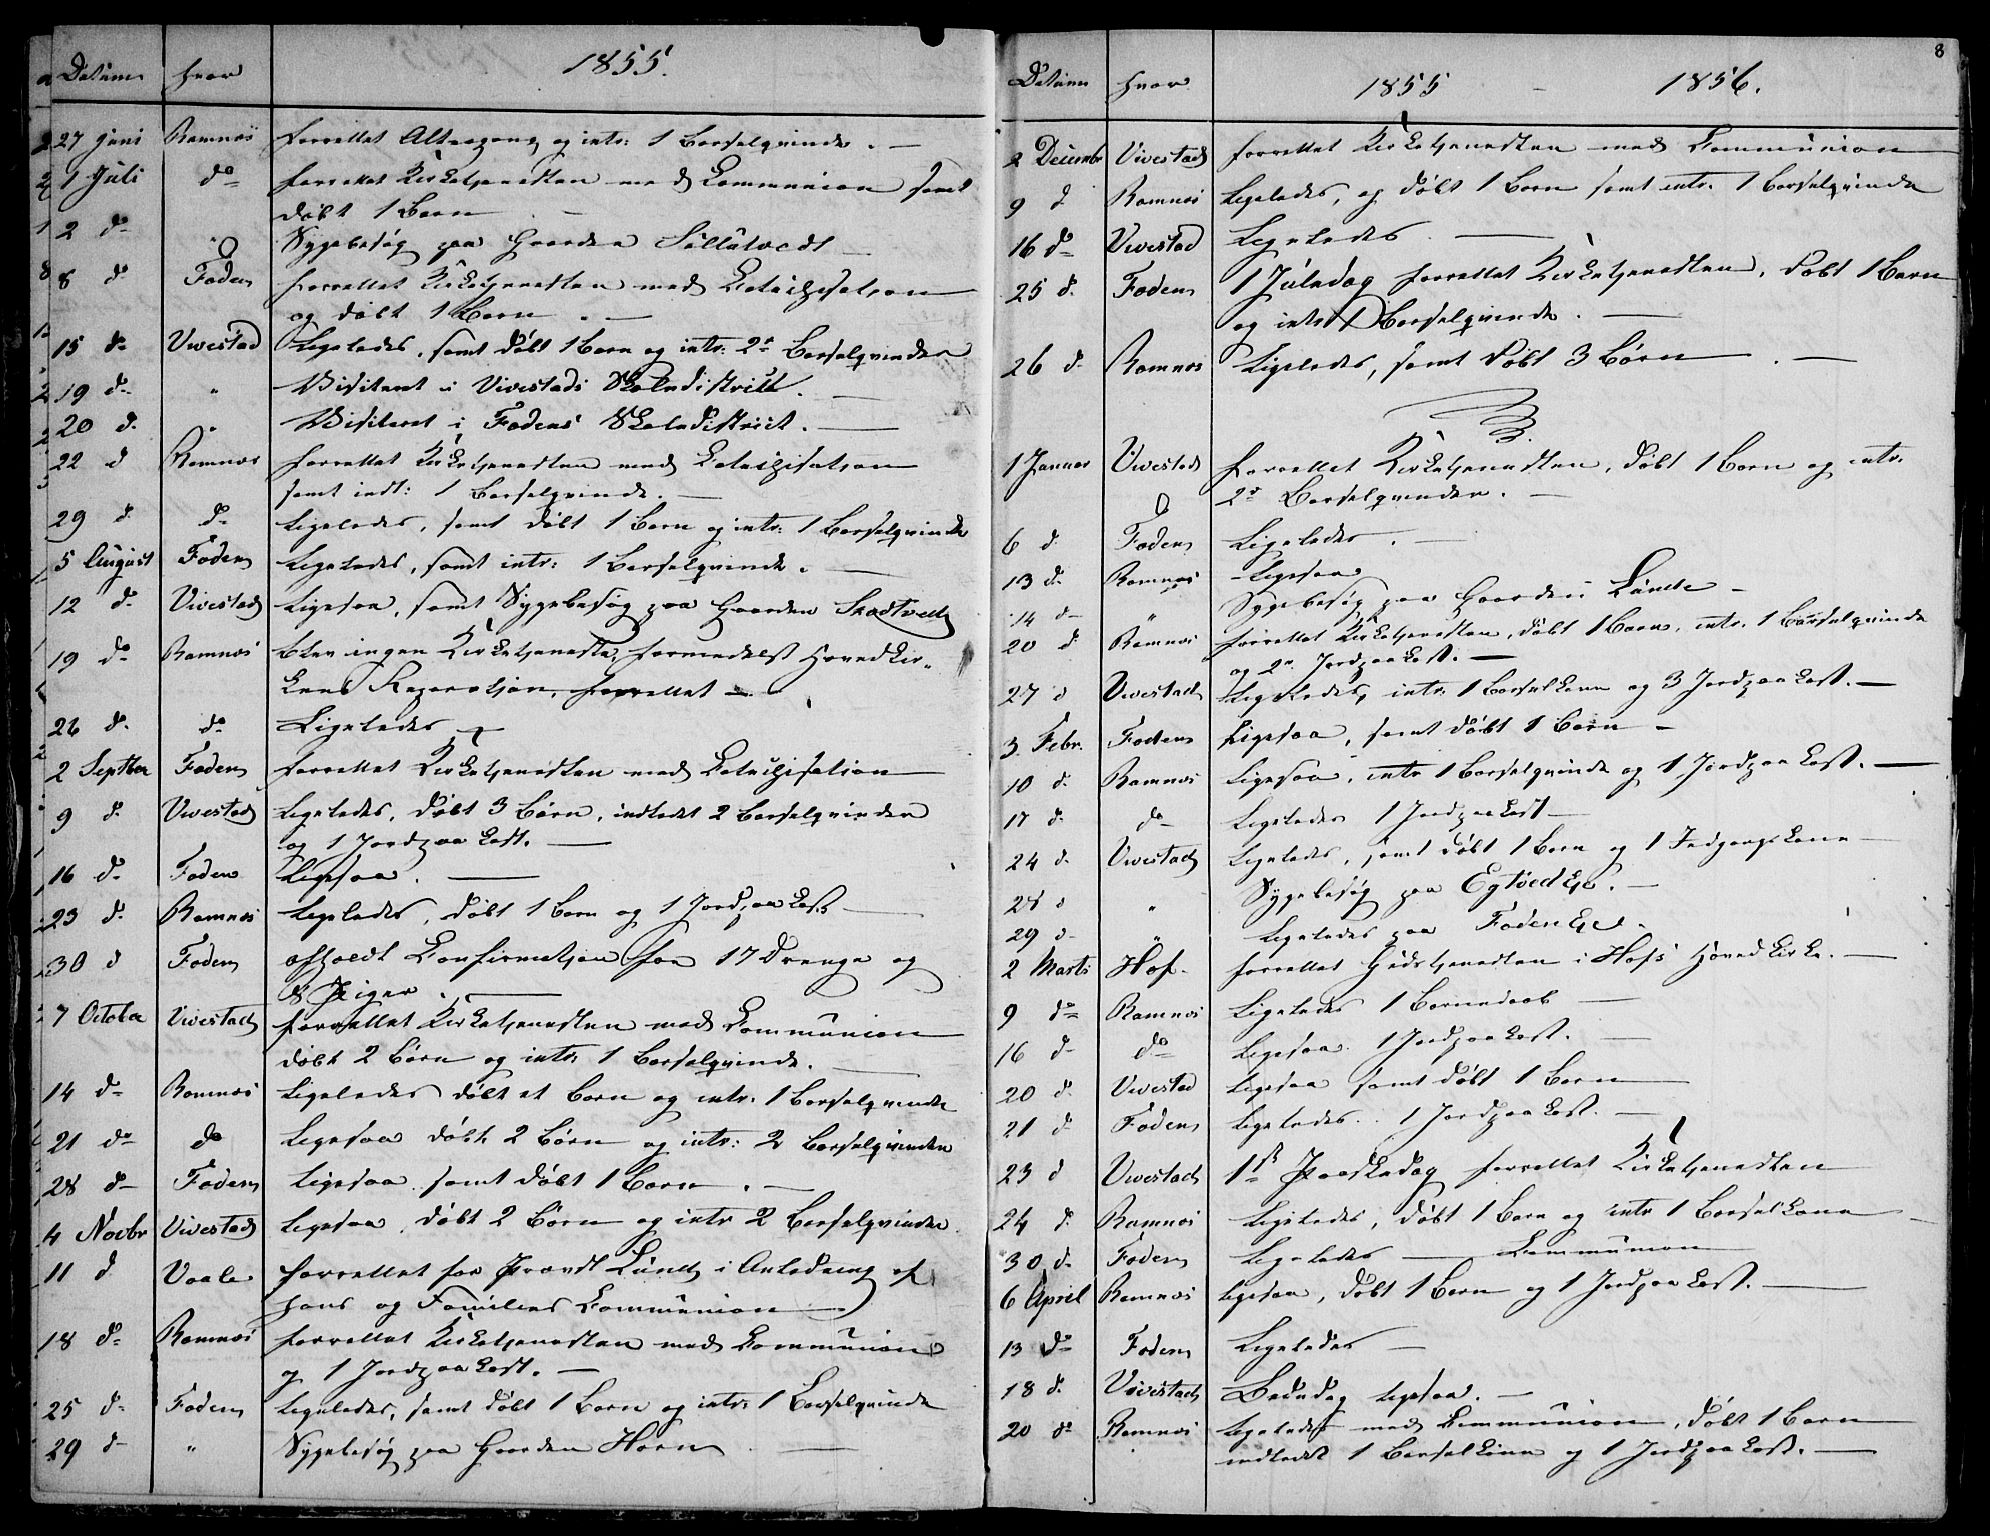 1855.
Datum hvor
27 Juni Ramnæs forrettet Altergang og intr: 1 Barselqvinde. —
1 Juli do forrettet Kirketjenesten med Communion samt
døbt 1 Barn —
2 do Sygebesøg paa Gaarden Sullutvedt —
8 do Foden forrettet Kirketjenesten med Catechisation
og døbt 1 Barn. —
15 do Vivestad Ligeledes, samt døbt 1 Barn og intr: 2de Barselqvinder
19 do " Visiteret i Vivestads Skoledistrikt. —
20 d. " Visiteret i Fodens Skoledistrict. —
22 d Ramnæs forrettet Kirketjenesten med Catechisation
samt indl: 1 Barselqvinde. —
29 d. do Ligeledes, samt døbt 1 Barn og intr: 1 Barselqvinde
5 August Foden Ligeledes, samt intr: 1 Barselqvinde. —
12 d. Vivestad Ligesaa, samt Sygebesøg paa Gaarden Skadtvedt
19 do Ramnæs blev ingen Kirketjeneste, formedelst Hovedkir-
kens Reparation, forrettet —
26 d. do Ligeledes —
2 Septber Foden forrettet Kirketjenesten med Catechisation
9 d. Vivestad Ligeledes, døbt 3 Børn, indledet 2 Barselqvinder
og 1 Jordpaakast. —
16 do Foden Ligesaa. —
23 d. Ramnæs Ligeledes, døbt 1 Barn og 1 Jordpaakast —
30 d Foden afholdt Confirmation for 17 Drenge og
8 Piger. —
7 October Vivestad forrettet Kirketjenesten med Communion
døbt 2 Børn og intr: 1 Barselqvinde. —
14 do Ramnæs Ligeledes døbt et Barn og intr. 1 Barselqvinde
21 do do Ligesaa døbt 2 Børn og intr: 2 Barselqvinder
28 d— Foden Ligesaa samt døbt 1 Barn. —
4 Novbr Vivestad Ligesaa, døbt 2 Børn og intr 2 Barselqvinder.
11 d Vaale forrettet for Provst Lund i Anledning af
hans og Familiens Communion —
18 do Ramnæs forrettet Kirketjenesten med Communion
og 1 Jordpaakast. —
25 do Foden Ligeledes, samt døbt 1 Barn og intr: 1 Barselqvinde
29 d— " Sygebesøg paa Gaarden Horn —
8
1855 - 1856.
Datum hvor
2 Decembr Vivestad forrettet Kirketjenesten med Communion
9 d Ramnæs Ligeledes, og døbt 1 Barn samt intr. 1 Barselqvinde
16 do Vivestad Ligeledes. —
25 d. Foden 1 Juledag forrettet Kirketjenesten, døbt 1 Barn
og intr. 1 Barselqvinde. —
26 d. Ramnæs Ligeledes, samt døbt 3 Børn. —
1 Januar Vivestad forrettet Kirketjenesten, døbt 1 Barn og intr.
2de Barselqvinder. —
6 d. Foden Ligeledes. —
13 do Ramnæs Ligesaa
14 d— " Sygebesøg paa Gaarden Lunde —
20 d. Ramnæs forrettet Kirketjenesten, døbt 1 Barn, intr. 1 Barselqvinde
og 2de Jordpaakast. —
27 d Vivestad Ligeledes, intr. 1 Barselkone og 3 Jordpaakast. —
3. Febr. Foden Ligesaa, samt døbt 1 Barn —
10 d. Ramnæs Ligesaa, intr 1 Barselqvinde og 1 Jordpaakast. —
17 d. do Ligeledes 1 Jordpaakast —
24 d. Vivestad Ligeledes, samt døbt 1 Barn og 1 Indgangskone —
28 d " Sygebesøg paa Egtvedt Eje. —
29 d— " Ligeledes paa Foden Eje —
2 Marts Hof. forrettet Gudstjenesten i Hofs Hovedkirke. —
9 do Ramnæs Ligeledes 1 Barnedaab —
16 d— do Ligesaa 1 Jordpaakast. —
20 d. Vivestad Ligesaa samt døbt 1 Barn —
21 d— Foden Ligeledes.. 1 Jordpaakast. —
23 d Vivestad 1ste Paaskedag forrettet Kirketjenesten
24 d. Ramnæs Ligeledes, døbt 1 Barn og intr 1 Barselkone —
30 d. Foden Ligeledes — Communion
6 April Ramnæs Ligesaa, døbt 1 Barn og 1 Jordpaakast. —
13 do Foden Ligeledes —
18 d. Vivestad Bededag ligesaa. —
20 do Ramnæs Ligeledes med Communion, døbt 1 Barn
indledet 1 Barselkone og 1 Jordpaakast. —